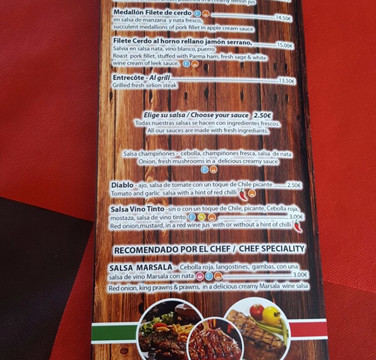 Medallón Filete de cerdo 14.50€
en salsa de manzana y nata fresco,
succulent medallions of pork fillet in apple cream sauce
Filete Cerdo al horno rellano jamón serrano, 15.00€
Salvia en salsa nata, vino blanco, puerro
Roast pork fillet, stuffed with Parma ham, fresh sage & white
wine cream of leek sauce
Entrecôte - Al grill 13.50€
Grilled fresh sirloin steak
Elige su salsa / Choose your sauce 2.50€
Todas nuestras salsas se hacen con ingredientes frescos
All our sauces are made with fresh ingredients
Salsa champiñones - cebolla, champiñones fresca, salsa de nata
Onion, fresh mushrooms in a delicious creamy sauce
Diablo - ajo, salsa de tomate con un toque de Chile picante 2.50€
Tomato and garlic salsa with a hint of red chilli
Salsa Vino Tinto - sin o con un toque de Chile picante, Cebolla roja,
mostaza, salsa de vino tinto 3.00€
Red onion, mustard, in a red wine jus with or without a hint of chilli
RECOMENDADO POR EL CHEF / CHEF SPECIALITY
SALSA MARSALA - Cebolla roja, langostinos, gambas, con una
salsa de vino Marsala con nata 3.00€
Red onion, king prawns & prawns, in a delicious creamy Marsala wine salsa